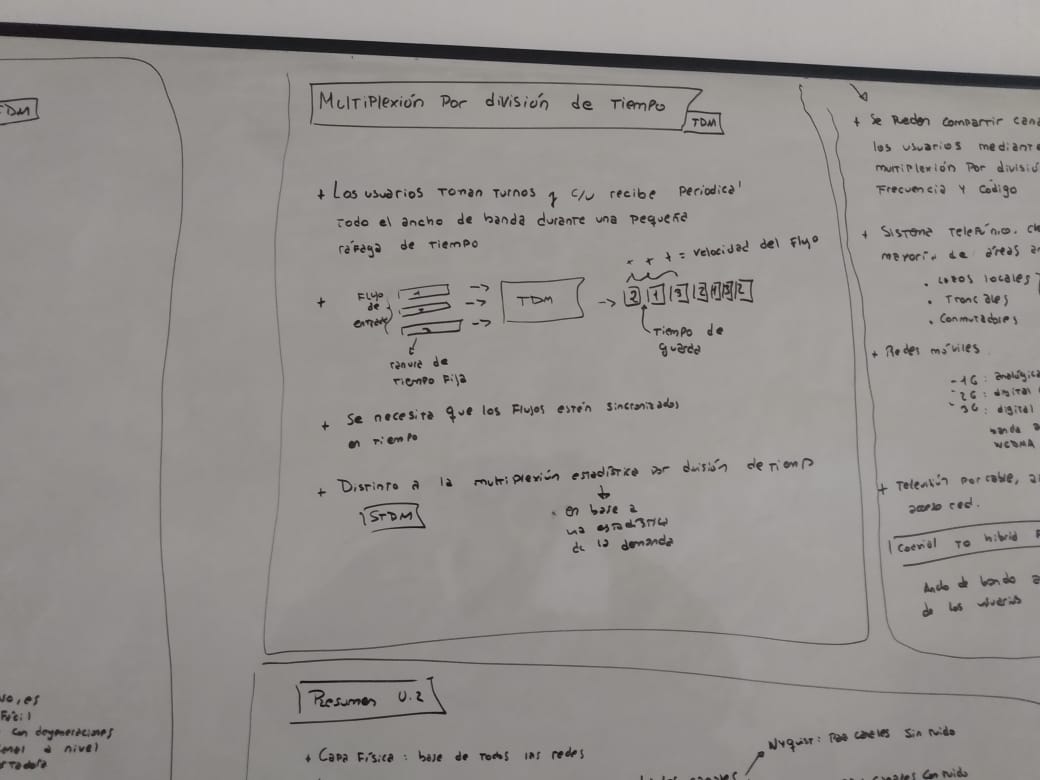 TDM
Multiplexión Por división de Tiempo
TDM
+ Los usuarios Toman Turnos y c/u recibe Periódica'
Todo el ancho de banda durante una pequeña
ráfaga de Tiempo
+ + + = velocidad del Flujo
+ Flujo
de
entrada
1
2
3
TDM
2 1 3 2 1 3 2
Tiempo de
guarda
ranura de
Tiempo Fija
+ Se necesita que los Flujos estén sincronizados
en Tiempo
+ Distinto a la multiplexión estadística por división de tiemp
STDM
en base a
una estadística
de la demanda
+ Se Pueden compartir
los usuarios mediante
multiplexión Por
Frecuencia y código
+ Sistema Telefónico.
mayoría de áreas
. Lazos locales
. Troncales
. Conmutadores
+ Redes móviles
- 1G: analógica
- 2G: digital
- 3G: digital
banda
WCDMA
+ Televisión por cable,
acceso red.
Coaxial To hibrid
Ancho de banda
de los usuarios
es
con degeneraciones
a nivel
Resumen U.2
+ Capa Física: base de Todos las redes
Nyquist: Para canales Sin ruido
canales
canales Con ruido